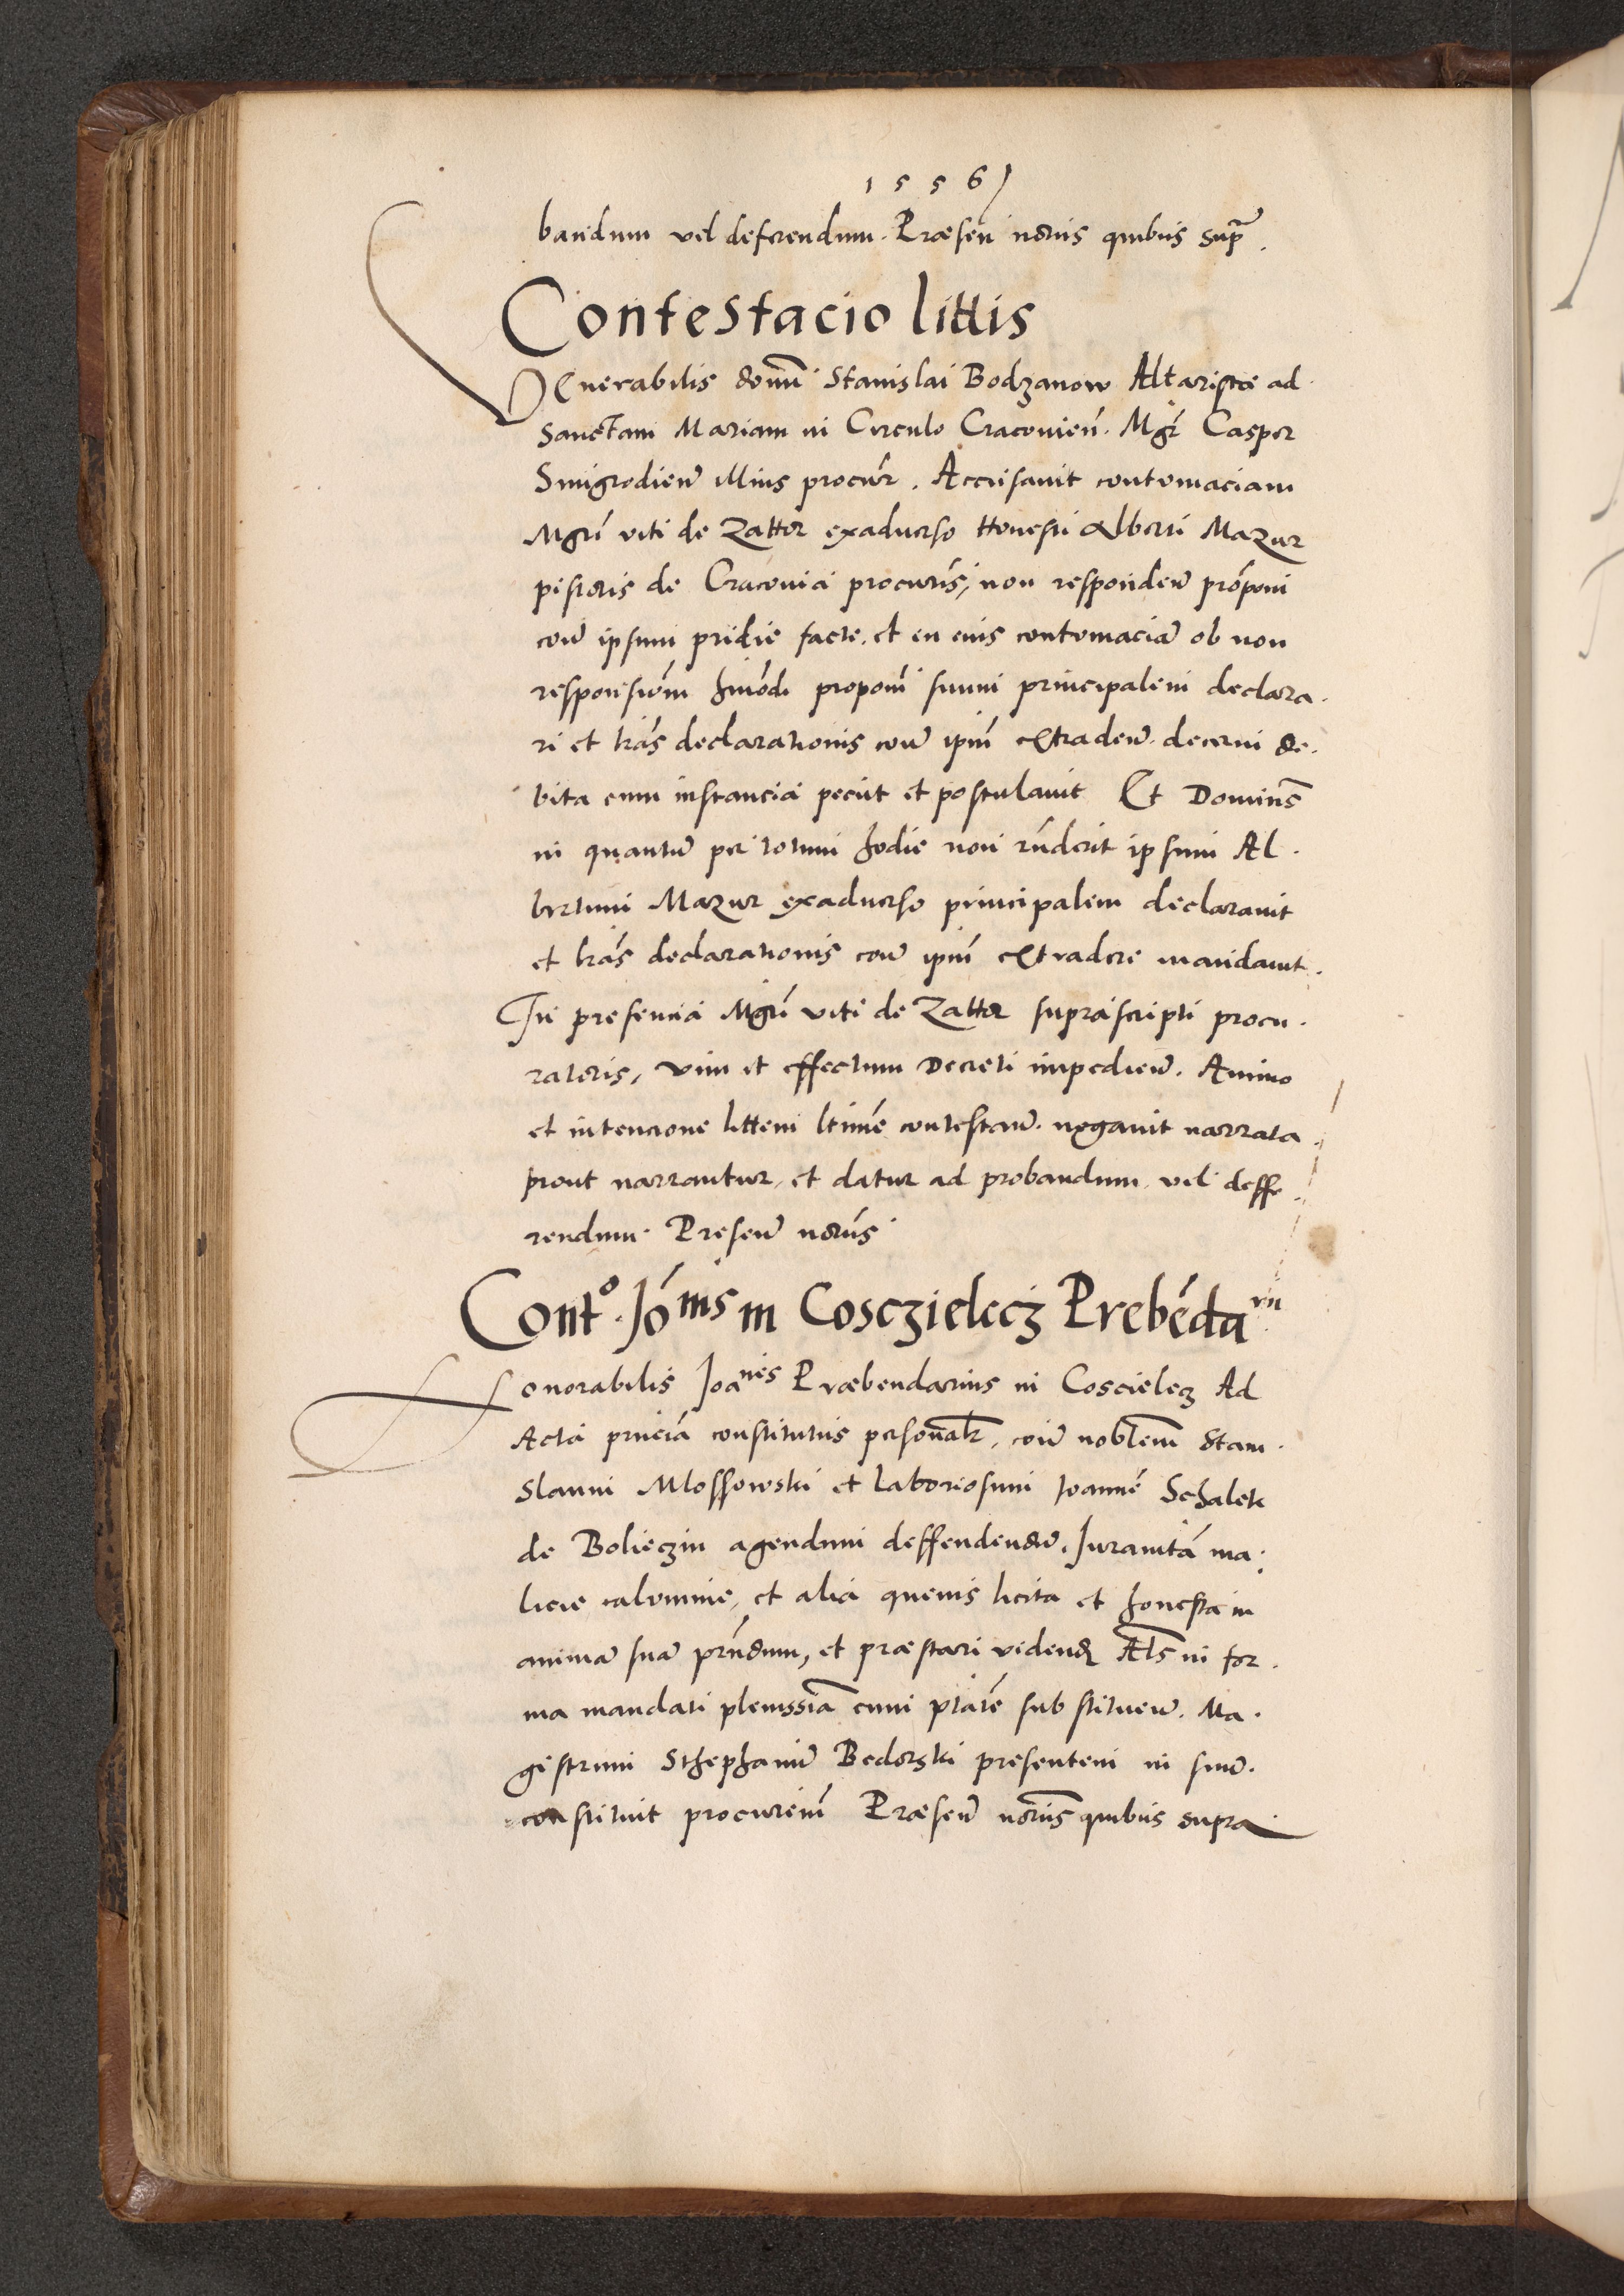 1556
bandum vel deferendum. Præsen̄ notīis quibus supͣ.
Contestacio littis
Venerabilis domī Stanislai Bodzanow Altaristæ ad
Sanctam Mariam in Circulo Cracovien̄. Mgr̄ Casper
Smigrodien̄ illius procur̄. Accusavit contumaciam
Mgrī viti de Zator exadverso Honesti Alberti Mazur
pistoris de Cracovia procurīs, non responden̄ prōponi
con̄ ipsum pridie facte, et in eius contumaciā ob non
responsiōm hmōdi proponī suum principalem declara
ri et lrās declarationis con̄ ipm̄ extraden̄. decerni de
bita cum instancia peciit et postulavit Et Dominūs
in quantū per totum hodie non rn̄derit ipsum Al
bertum Mazur exadverso principalem declaravit
et lrās declarationis con̄ ipm̄ extradere mandavit.
In presencia Mgrī viti de Zator suprascripti procu
ratoris, vim et effectum Decreti impedien̄. Animo
et intencione littem ltimē contestan̄. negavit narrata
prout narrantur, et datur ad probandum, vel deffe
rendum. Presen̄ notīis
Contº. Joīs in Cosczielecz Prebēdarii
Honorabilis Joānēs Præbendarius in Coscielecz Ad
Acta pn̄cia constitutus personalr̄, con̄ nobilem̄ Stani
slaum Mlossowski et laboriosum Joannē Schalek
de Bolieczin agendum deffendendū. Juramtā ma
licie calumnie, et alia quevis licita et honesta in
animā suā prn̄dum, et præstari videnđ Als̄ in for
ma mandati plenissiā cum ptatē substituen̄. Ma
gistrum Sthephanū Bedorski presentem in suū
constituit procurem̄ Præsen̄ notīis quibus supra